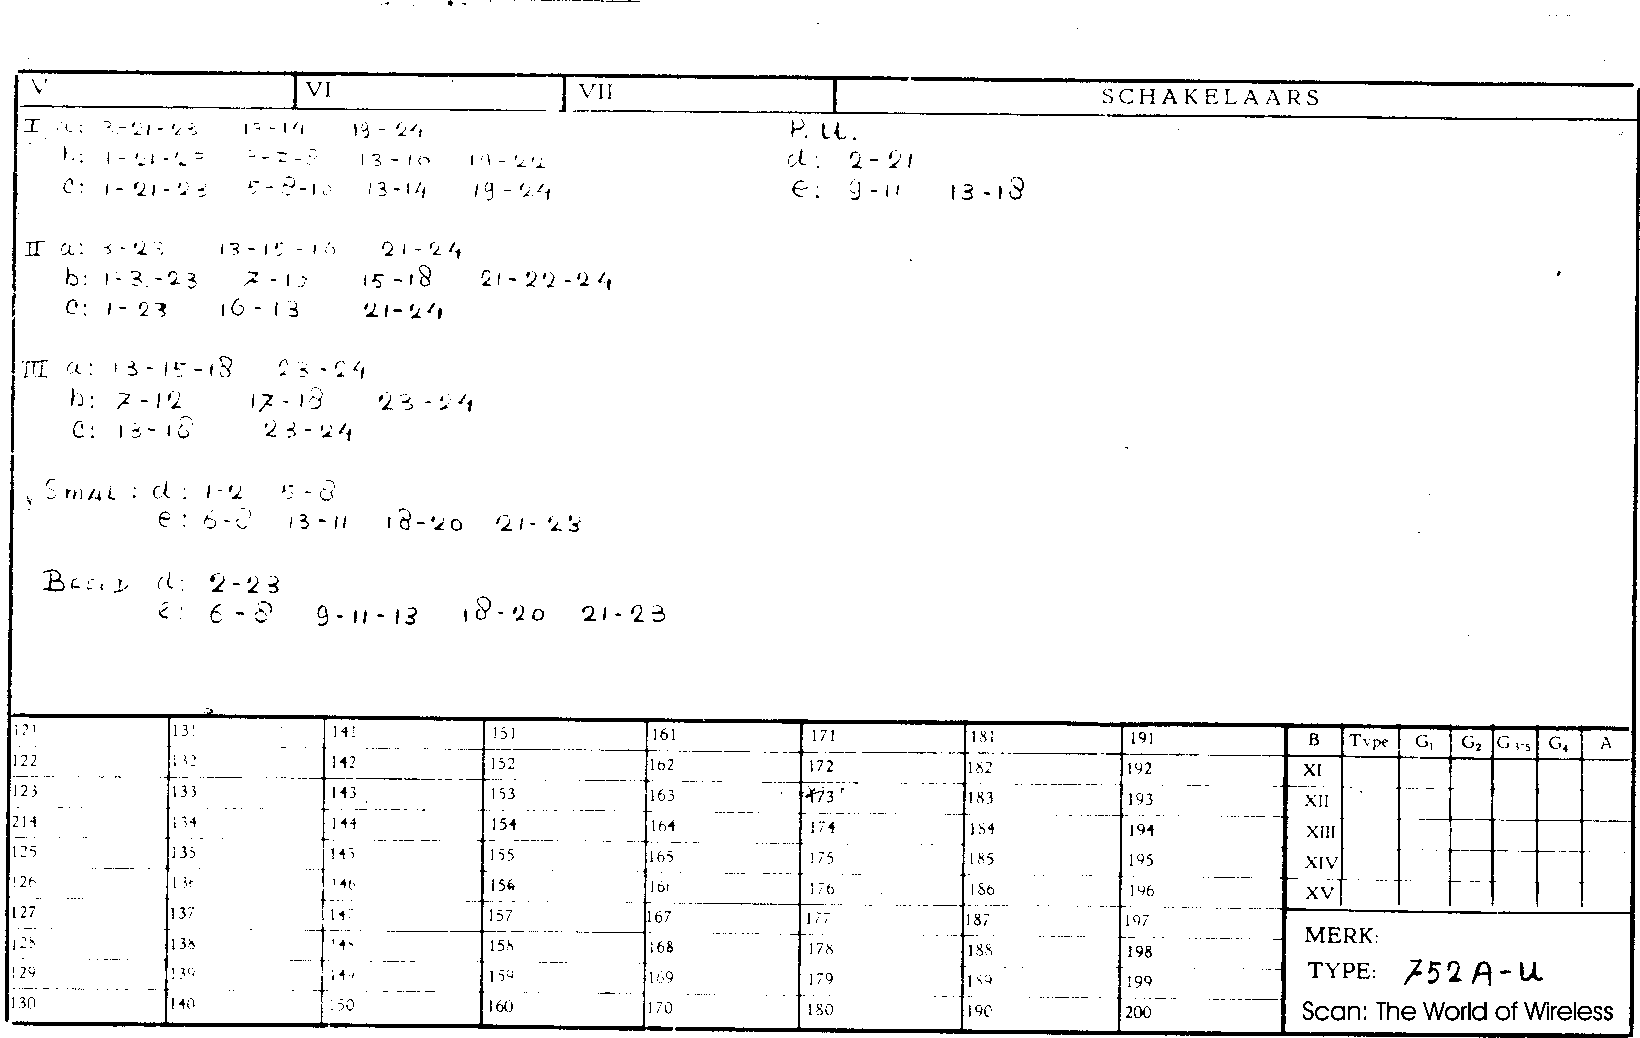 V VI VII SCHAKELAARS
I a: 3-21-23 13-14 19-24 P.U.
b: 1-21-23 13-18 19-22 d: 2-21
c: 1-21-23 5-8-10 13-14 19-24 e: 9-11 13-18
II a: 3-23 13-15-18 21-24
b: 1-3-23 15-18 21-22-24
c: 1-23 16-13 21-24
III a: 13-15-18 23-24
b: 7-12 17-18 23-24
c: 13-18 23-24
Smal: d: 1-2 5-8
e: 6-8 13-11 18-20 21-23
Breed d: 2-23
e: 6-8 9-11-13 18-20 21-23
121 131 141 151 161 171 181 191 B Type G1 G2 G3-5 G4 A
122 132 142 152 162 172 182 192 XI
123 133 143 153 163 173 183 193 XII
214 134 144 154 164 174 184 194 XIII
125 135 145 155 165 175 185 195 XIV
126 136 146 156 166 176 186 196 XV
127 137 147 157 167 177 187 197
128 138 148 158 168 178 188 198 MERK:
129 139 149 159 169 179 189 199 TYPE: 752A-U
130 140 150 160 170 180 190 200 Scan: The World of Wireless